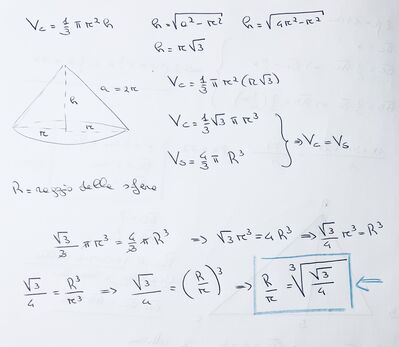 V_c = 1/3 π r² h    h = √(a² - r²)    h = √(4r² - r²)
h = r√3
a = 2r
h
r    r
V_c = 1/3 π r² (r√3)
V_c = 1/3 √3 π r³
V_s = 4/3 π R³    ⇒ V_c = V_s
R = raggio della sfera
√3/3 π r³ = 4/3 π R³ ⇒ √3 r³ = 4 R³ ⇒ √3/4 r³ = R³
√3/4 = R³/r³ ⇒ √3/4 = (R/r)³ ⇒ R/r = ∛(√3/4) ⇐